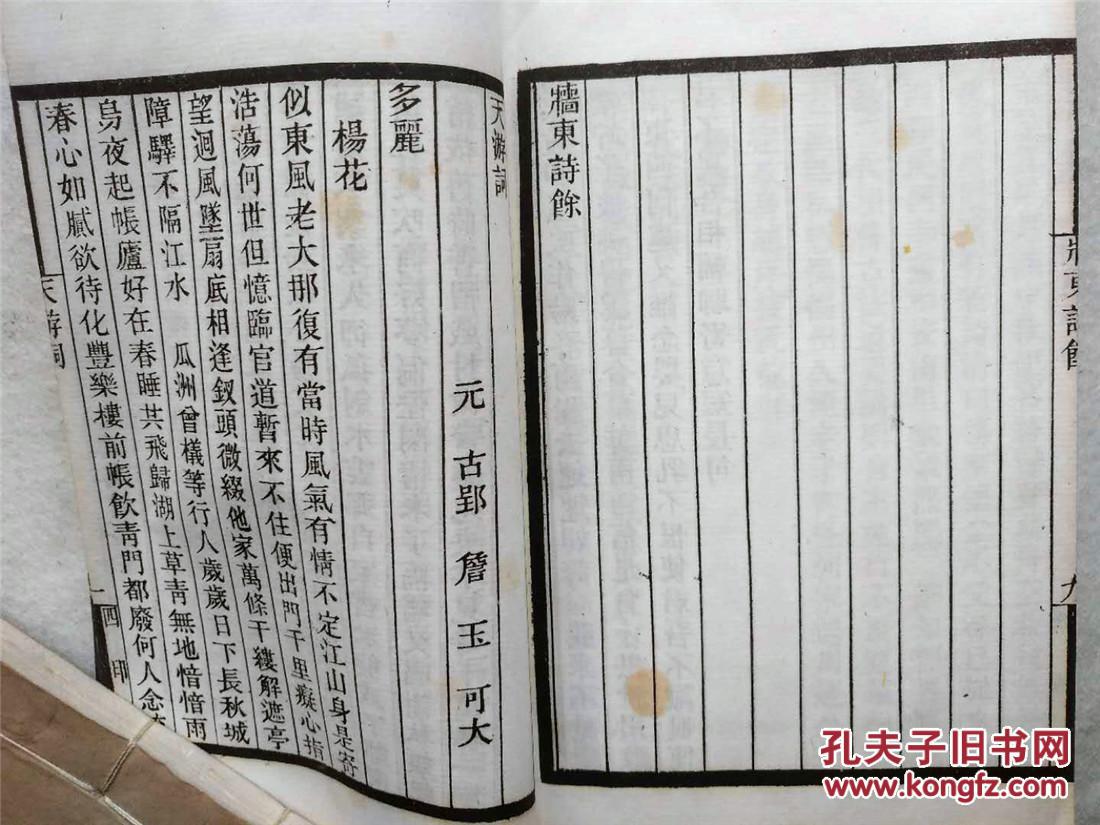 牆東詩餘
牆東詩餘
九
天游詞
元 古郢 詹 玉 可大
多麗
楊花
似東風老大那復有當時風氣有情不定江山身是寄
浩蕩何世但憶臨官道暫來不住便出門千里癡心指
望迴風墜扇底相逢釵頭微綴他家萬條千縷解遮亭
障驛不隔江水 瓜洲曾檥等行人歲歲日下長秋城
烏夜起帳廬好在春睡共飛歸湖上草青無地愔愔雨
春心如膩欲待化豐樂樓前帳飲青門都廢何人念
天游詞
一
四印
孔夫子旧书网
www.kongfz.com